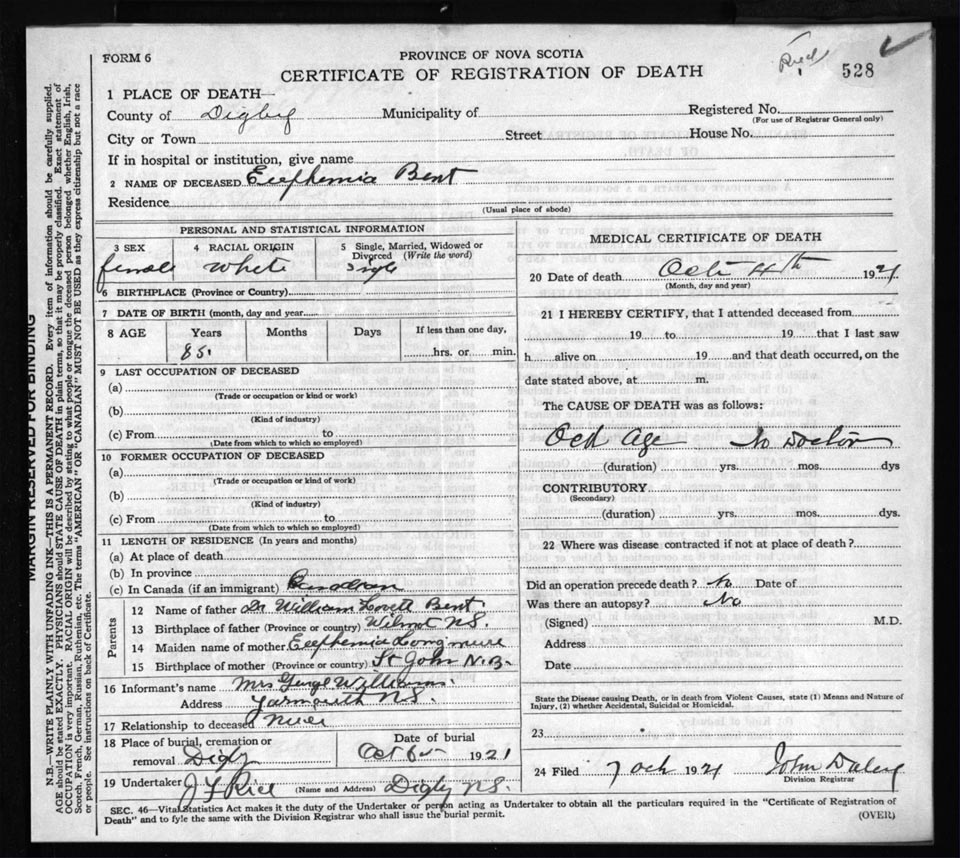 FORM 6
PROVINCE OF NOVA SCOTIA
CERTIFICATE OF REGISTRATION OF DEATH
528
1 PLACE OF DEATH—
County of Digby Municipality of Registered No.
(For use of Registrar General only)
City or Town Street House No.
If in hospital or institution, give name
2 NAME OF DECEASED Euphemia Bent
Residence
(Usual place of abode)
PERSONAL AND STATISTICAL INFORMATION
3 SEX 4 RACIAL ORIGIN 5 Single, Married, Widowed or Divorced (Write the word)
female White
6 BIRTHPLACE (Province or Country)
7 DATE OF BIRTH (month, day and year)
8 AGE Years Months Days If less than one day,
85 hrs. or min.
9 LAST OCCUPATION OF DECEASED
(a)
(Trade or occupation or kind or work)
(b)
(Kind of industry)
(c) From to
(Date from which to which so employed)
10 FORMER OCCUPATION OF DECEASED
(a)
(Trade or occupation or kind of work)
(b)
(Kind of industry)
(c) From to
(Date from which to which so employed)
11 LENGTH OF RESIDENCE (In years and months)
(a) At place of death
(b) In province
(c) In Canada (if an immigrant) Canadian
Parents
12 Name of father Dr William Lovett Bent
13 Birthplace of father (Province or country) Wilmot N.S.
14 Maiden name of mother Euphemia Longmire
15 Birthplace of mother (Province or country) St John N.B.
16 Informant's name Mrs Williams
Address Yarmouth N.S.
17 Relationship to deceased Niece
18 Place of burial, cremation or removal Digby
Date of burial
Oct 6 1921
19 Undertaker J F Rice (Name and Address) Digby N.S.
MEDICAL CERTIFICATE OF DEATH
20 Date of death Oct 4th 1921
(Month, day and year)
21 I HEREBY CERTIFY, that I attended deceased from
19 to 19 that I last saw
h alive on 19 and that death occurred, on the
date stated above, at m.
The CAUSE OF DEATH was as follows:
Old Age No Doctor
(duration) yrs. mos. dys
CONTRIBUTORY
(Secondary)
(duration) yrs. mos. dys.
22 Where was disease contracted if not at place of death?
Did an operation precede death? No Date of
Was there an autopsy? No
(Signed) M.D.
Address
Date
State the Disease causing Death, or in death from Violent Causes, state (1) Means and Nature of
Injury, (2) whether Accidental, Suicidal or Homicidal.
23
24 Filed 7 Oct 1921 John Daley
Division Registrar
SEC. 46—Vital Statistics Act makes it the duty of the Undertaker or person acting as Undertaker to obtain all the particulars required in the "Certificate of Registration of
Death" and to fyle the same with the Division Registrar who shall issue the burial permit.
(OVER)
MARGIN RESERVED FOR BINDING
N.B.—WRITE PLAINLY WITH UNFADING INK—THIS IS A PERMANENT RECORD. Every item of information should be carefully supplied.
AGE should be stated EXACTLY. PHYSICIANS should STATE CAUSE OF DEATH in plain terms, so that it may be properly classified. Exact statement of
OCCUPATION is very important. RACIAL ORIGIN will be described by stating to what people or tongue the deceased person belonged whether English, Irish,
Scotch, French, German, Russian, Ruthenian, etc. The terms "AMERICAN" OR "CANADIAN" MUST NOT BE USED as they express citizenship but not a race
or people. See instructions on back of Certificate.